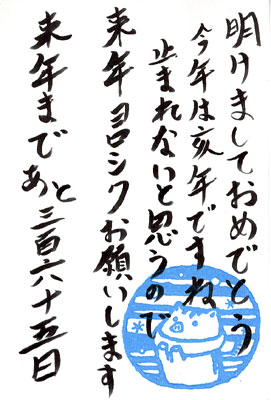 明けましておめでとう
今年は亥年ですね
止まれないと思うので
来年ヨロシクお願いします
来年まであと三百六十五日